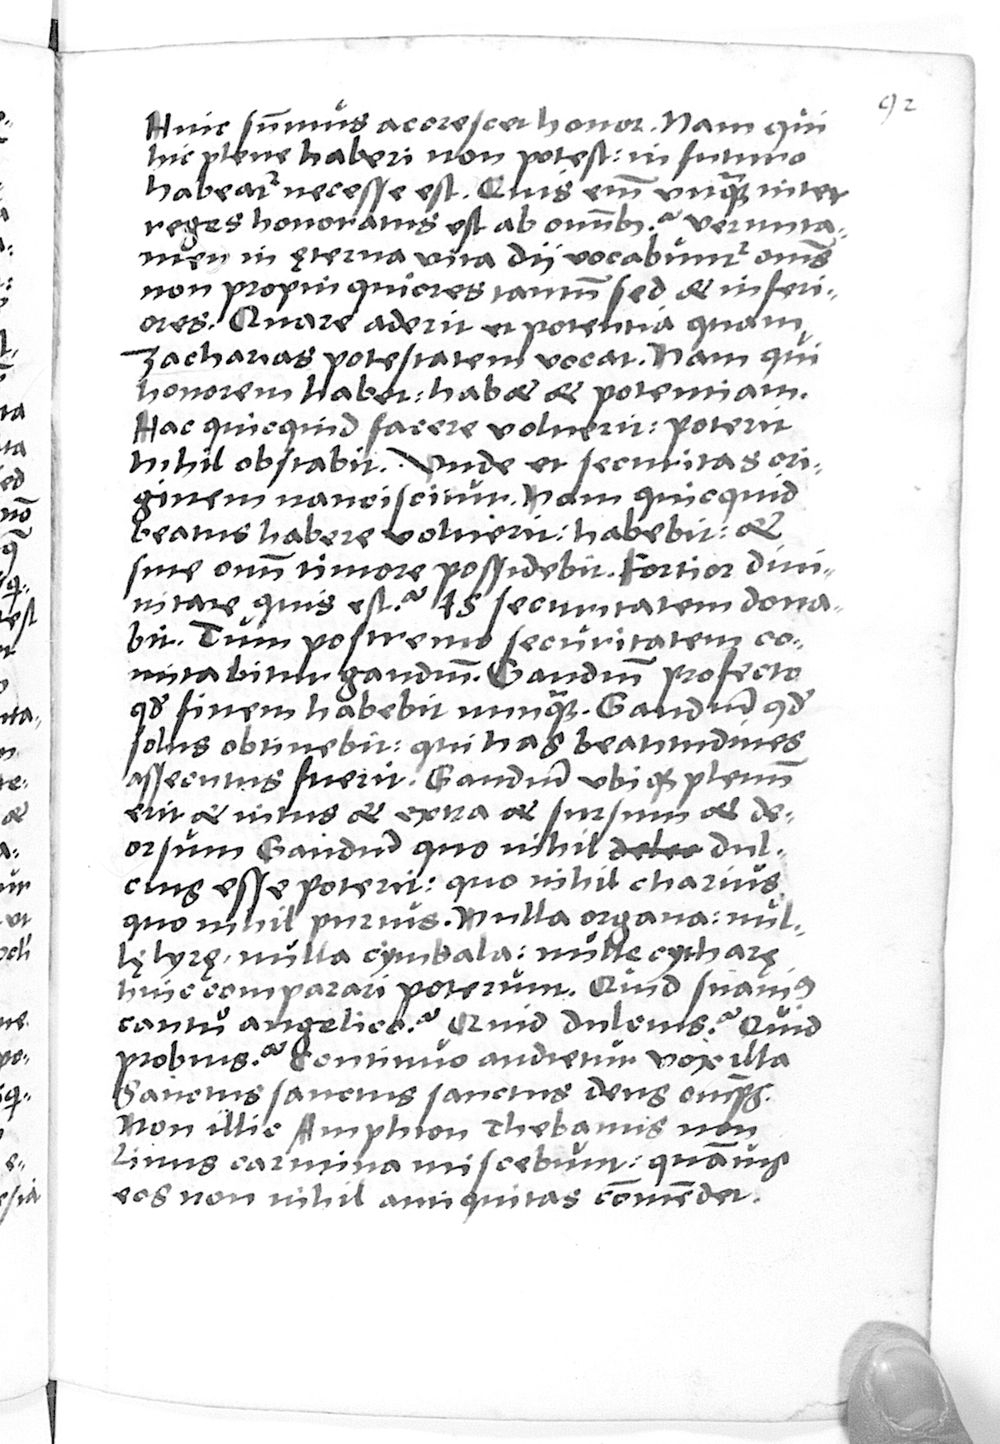 92
Huic sum̄mus accrescet honor. Nam qui
hic plene haberi non potest: in futuro
habeat᷑ necesse est. Quis em̄ vnq̄ꝫ inter
reges honoratus est ab omnibꝫ? verunta-
men in ęterna vita dij vocabunt᷑ om̄s
non propinquiores tantum̄ sed & inferi-
ores. Quare aderit et potentia quam
Zacharias potestatem vocat. Nam qui
honorem habet: habet & potentiam.
Hac quicquid facere voluerit: poterit
nihil obstabit. Vnde et securitas ori-
ginem nanciscitur. Nam quicquid
beatus habere voluerit: habebit: &
sine omn̄i timore possidebit. Fortior diui-
nitate quis est? Is securitatem dona-
bit. Tum postremo securitatem co-
mitabitur gaudiū. Gaudiū profecto
qđ finem habebit nunq̄ꝫ. Gaudiū qđ
solus obtinebit: qui has beatitudines
assecutus fuerit. Gaudiū vbiqꝫ plenū
erit & intus & extra & sursum & de-
orsum Gaudiū quo nihil dul-
cius esse poterit: quo nihil charius
quo nihil purius. Nulla organa: nul-
lę lyrę, nulla cymbala: nulle cytharę
huic comparari poterunt. Quid suauiꝰ
cantu angelico? Quid dulcius? Quid
probius? Continuo audietur vox illa
Sanctus sanctus sanctus deus omp̄s.
Non illic Amphion Thebanus non
Linus carmina miscebunt: quāuis
eos non nihil antiquitas com̄endet.